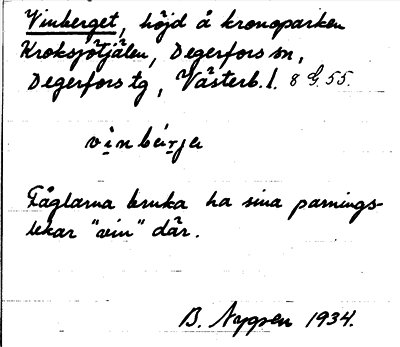 Vinberget, höjd å kronoparken
Kroksjötjälen, Degerfors sn,
Degerfors tg, Västerb. l. 8 G. 55.
vi̱nbäṟjɐ
Fåglarna bruka ha sina parnings-
lekar "vin" där.
B. Nygren 1934.